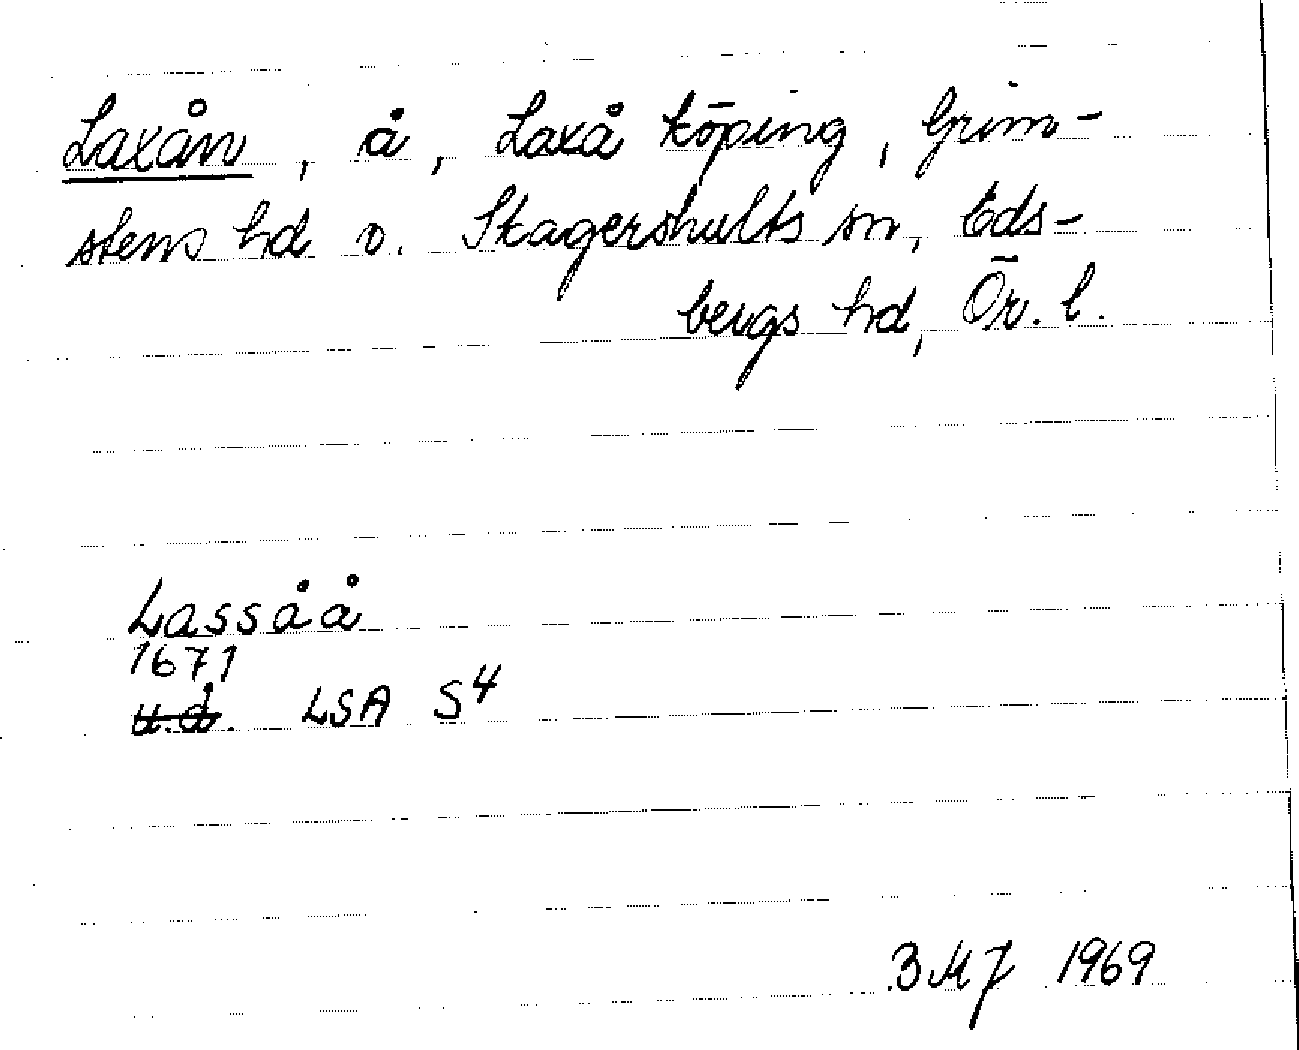 Laxån, å, Laxå köping, Grim-
stens hd o. Skagershults sn, Eds-
bergs hd, Ör. l.
Lassåå
1671
u.d. LSA S4
BMJ 1969